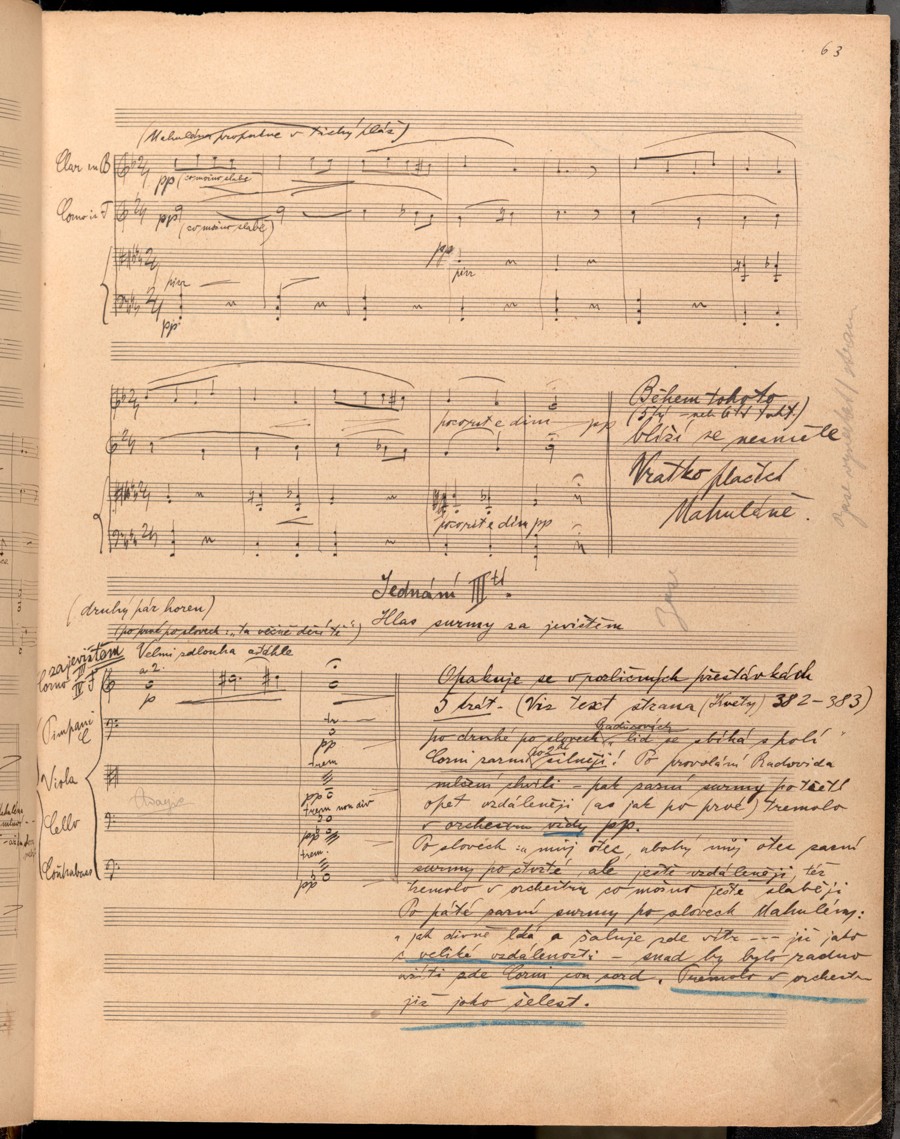 63
(Mahulena propukne v tichý pláč)
Clar in B
pp (co možno slabě
Corno in F
pp
(co možno slabě)
pp
pizz
pizz
pp
pozorněji e dim pp
Během tohoto
(5tý – neb 6tý takt.)
blíží se nesměle
Vratko plačící
Mahuleně.
dim pp
Jednání III tí.
(druhý ráz horem)
Hlas surmy za jevištěm
(po prvé po slovech: „ta věčně děsí tě")
za jevištěm
Velmi zdlouha a táhle
Corno III IV F
a 2.
p
Opakuje se v různých přestávkách
5 krát. – (Viz text strana (Květy) 382–383)
Timpani C
tr
pp
po druhé po slovech „lid se sbíhá s polí"
Corni zazní silněji! Po provolání Radovida
Viola
trem
pp
mlčení chvíli – pak zazní surmy po třetí
trem non div
opět vzdáleněji (as jak po prvé) tremolo
Cello
pp
v orchestru vždy pp.
trem.
Po slovech: „můj otec, ubohý můj otec zazní
Contrabasso
pp
surmy po čtvrté, ale ještě vzdáleněji, též
tremolo v orchestru co možno ještě slaběji
Po páté zazní surmy po slovech Mahuleny:
„jak divně lká a šaluje zde vítr --- již jako
z veliké vzdálenosti – snad by bylo radno
vzíti zde Corni con sord. Tremolo v orchestru
již jako šelest.